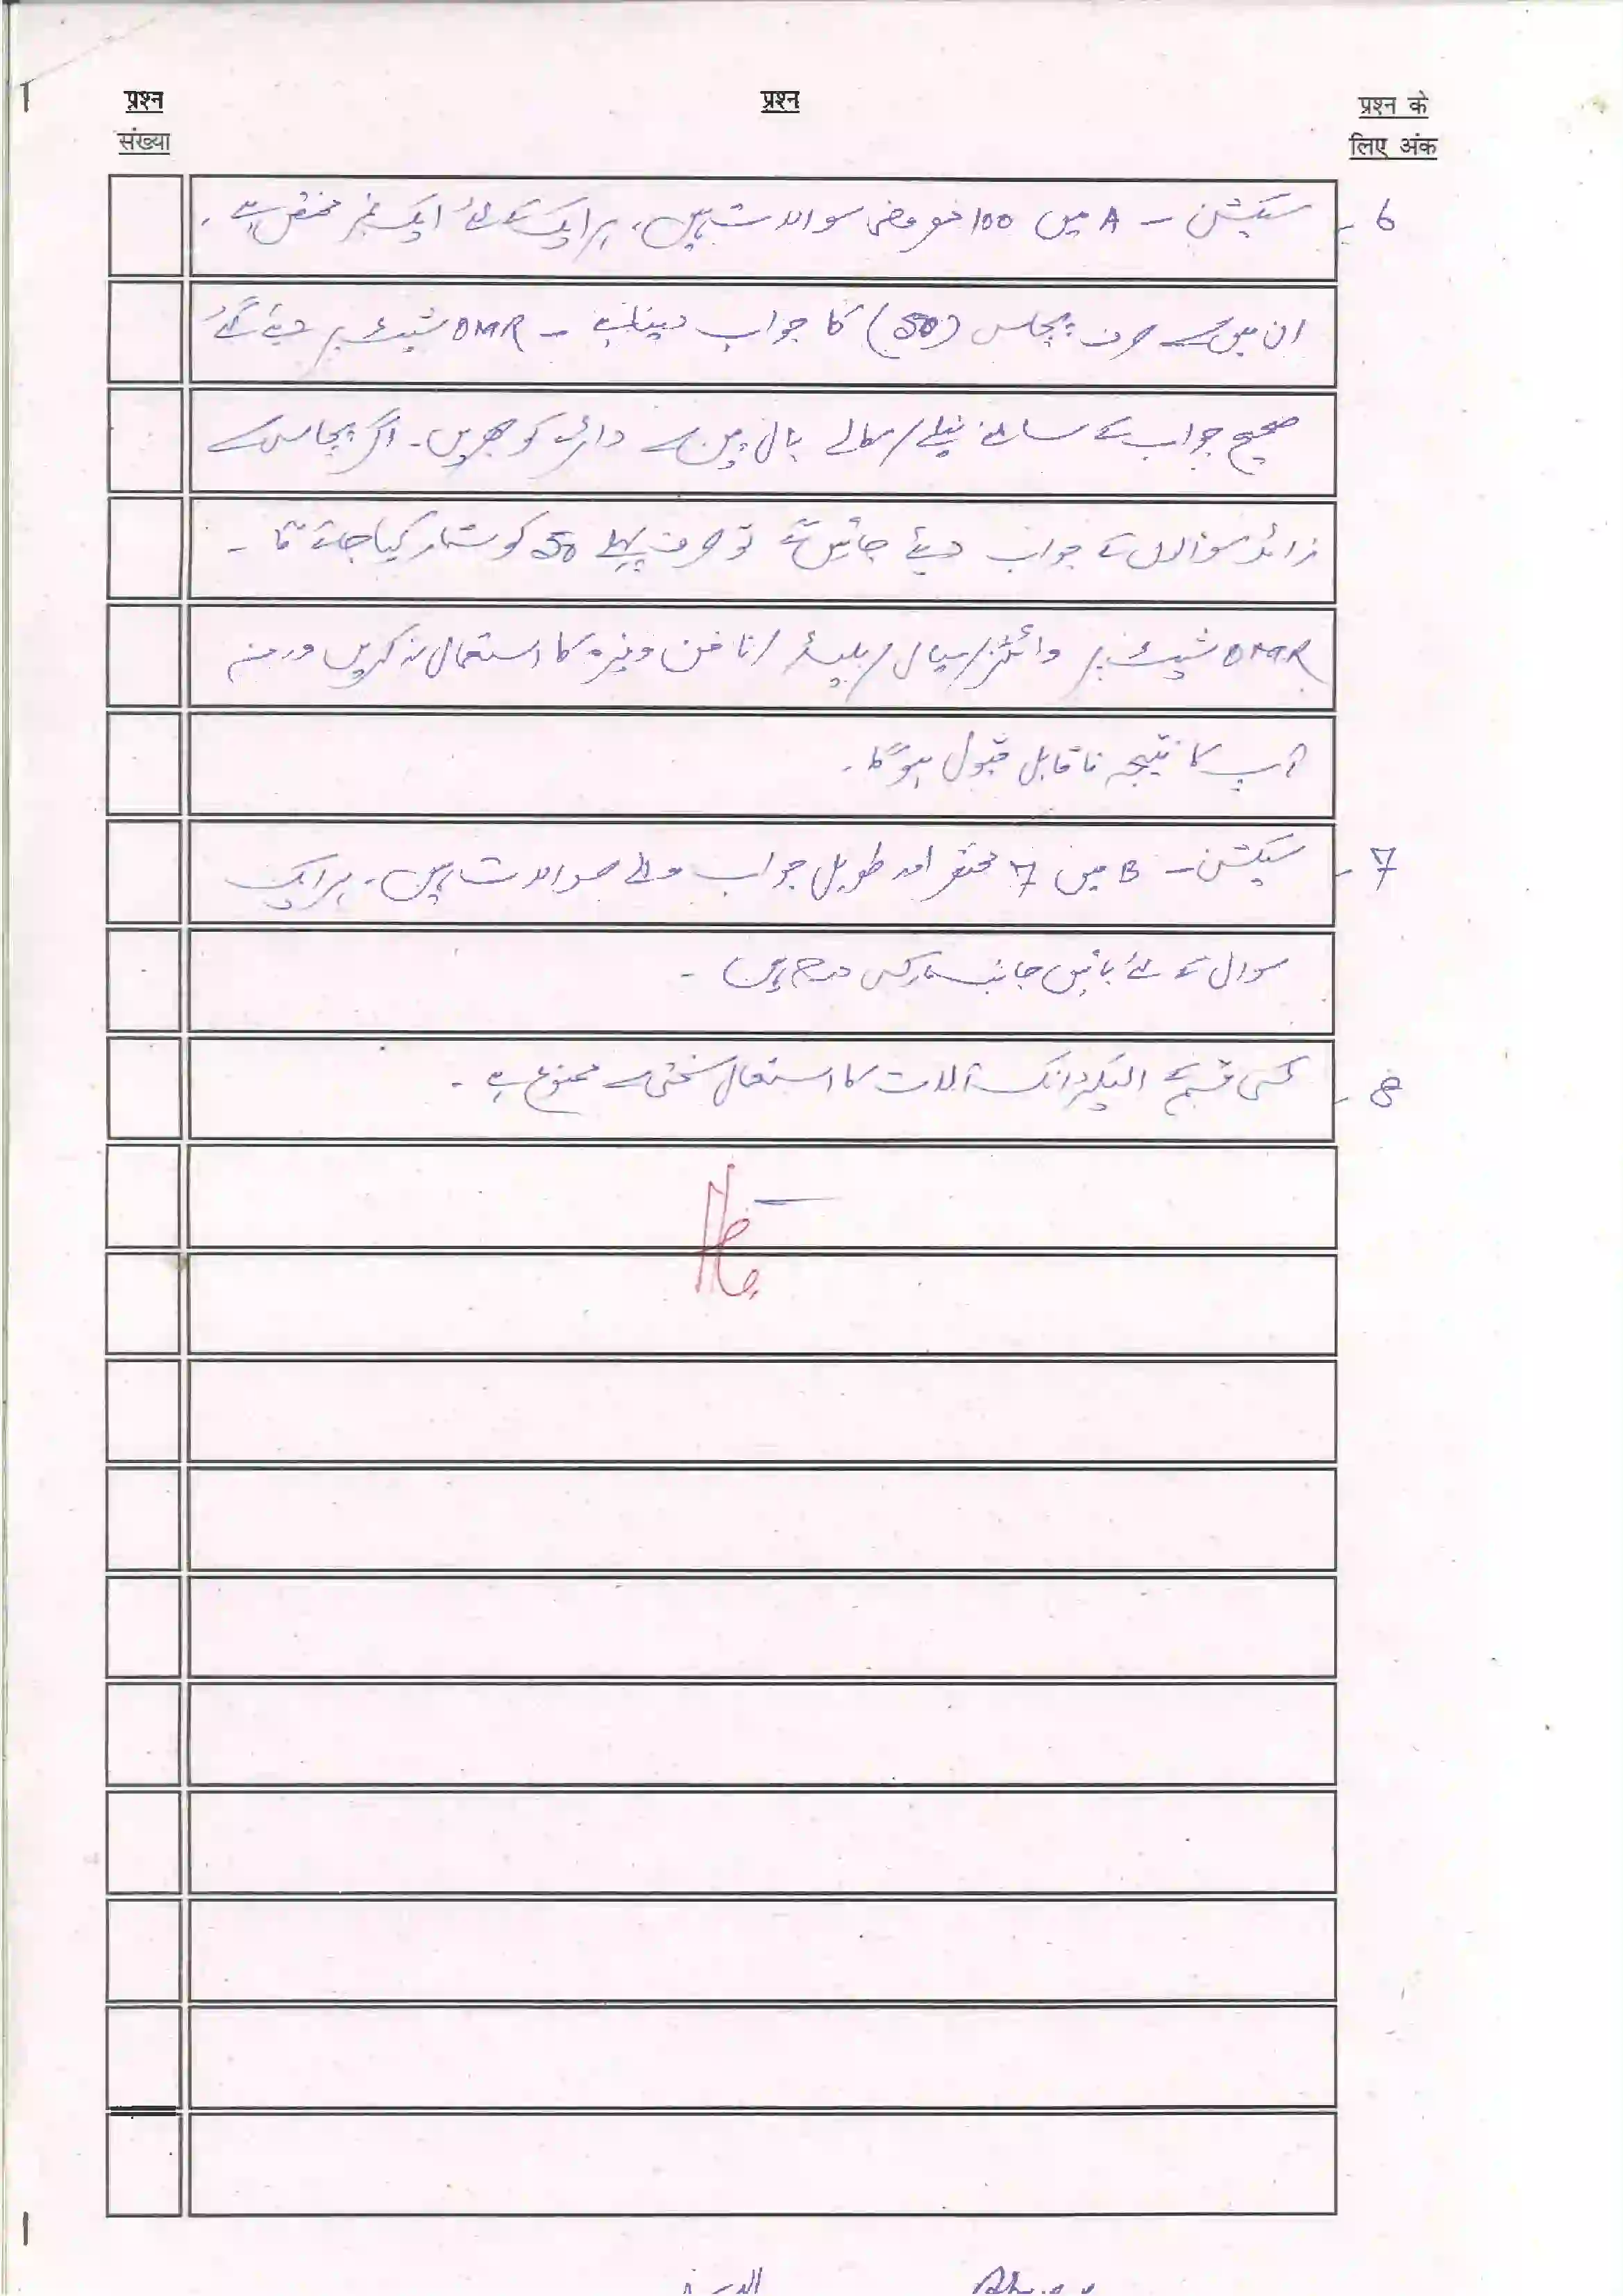 प्रश्न संख्या
प्रश्न
प्रश्न के लिए अंक
6 - سیکشن - A میں 100 معروضی سوالات ہیں، ہر ایک کے لئے ایک نمبر مختص ہے۔
ان میں سے صرف پچاس (50) کا جواب دینا ہے - OMR شیٹ پر دیئے گئے
صحیح جواب کے سامنے نیلے/کالے بال پین سے دائرے کو بھریں۔ اگر پچاس سے
زائد سوالوں کے جواب دیئے جائیں گے تو صرف پہلے 50 کو شمار کیا جائے گا -
OMR شیٹ پر وائٹنر/سیال/بلیڈ/ناخن وغیرہ کا استعمال نہ کریں ورنہ
آپ کا نتیجہ ناقابل قبول ہوگا۔
7 - سیکشن - B میں 7 مختصر اور طویل جواب والے سوالات ہیں، ہر ایک
سوال کے لئے بائیں جانب مارکس درج ہیں -
8 - کسی قسم کے الیکٹرانک آلات کا استعمال سختی سے ممنوع ہے -